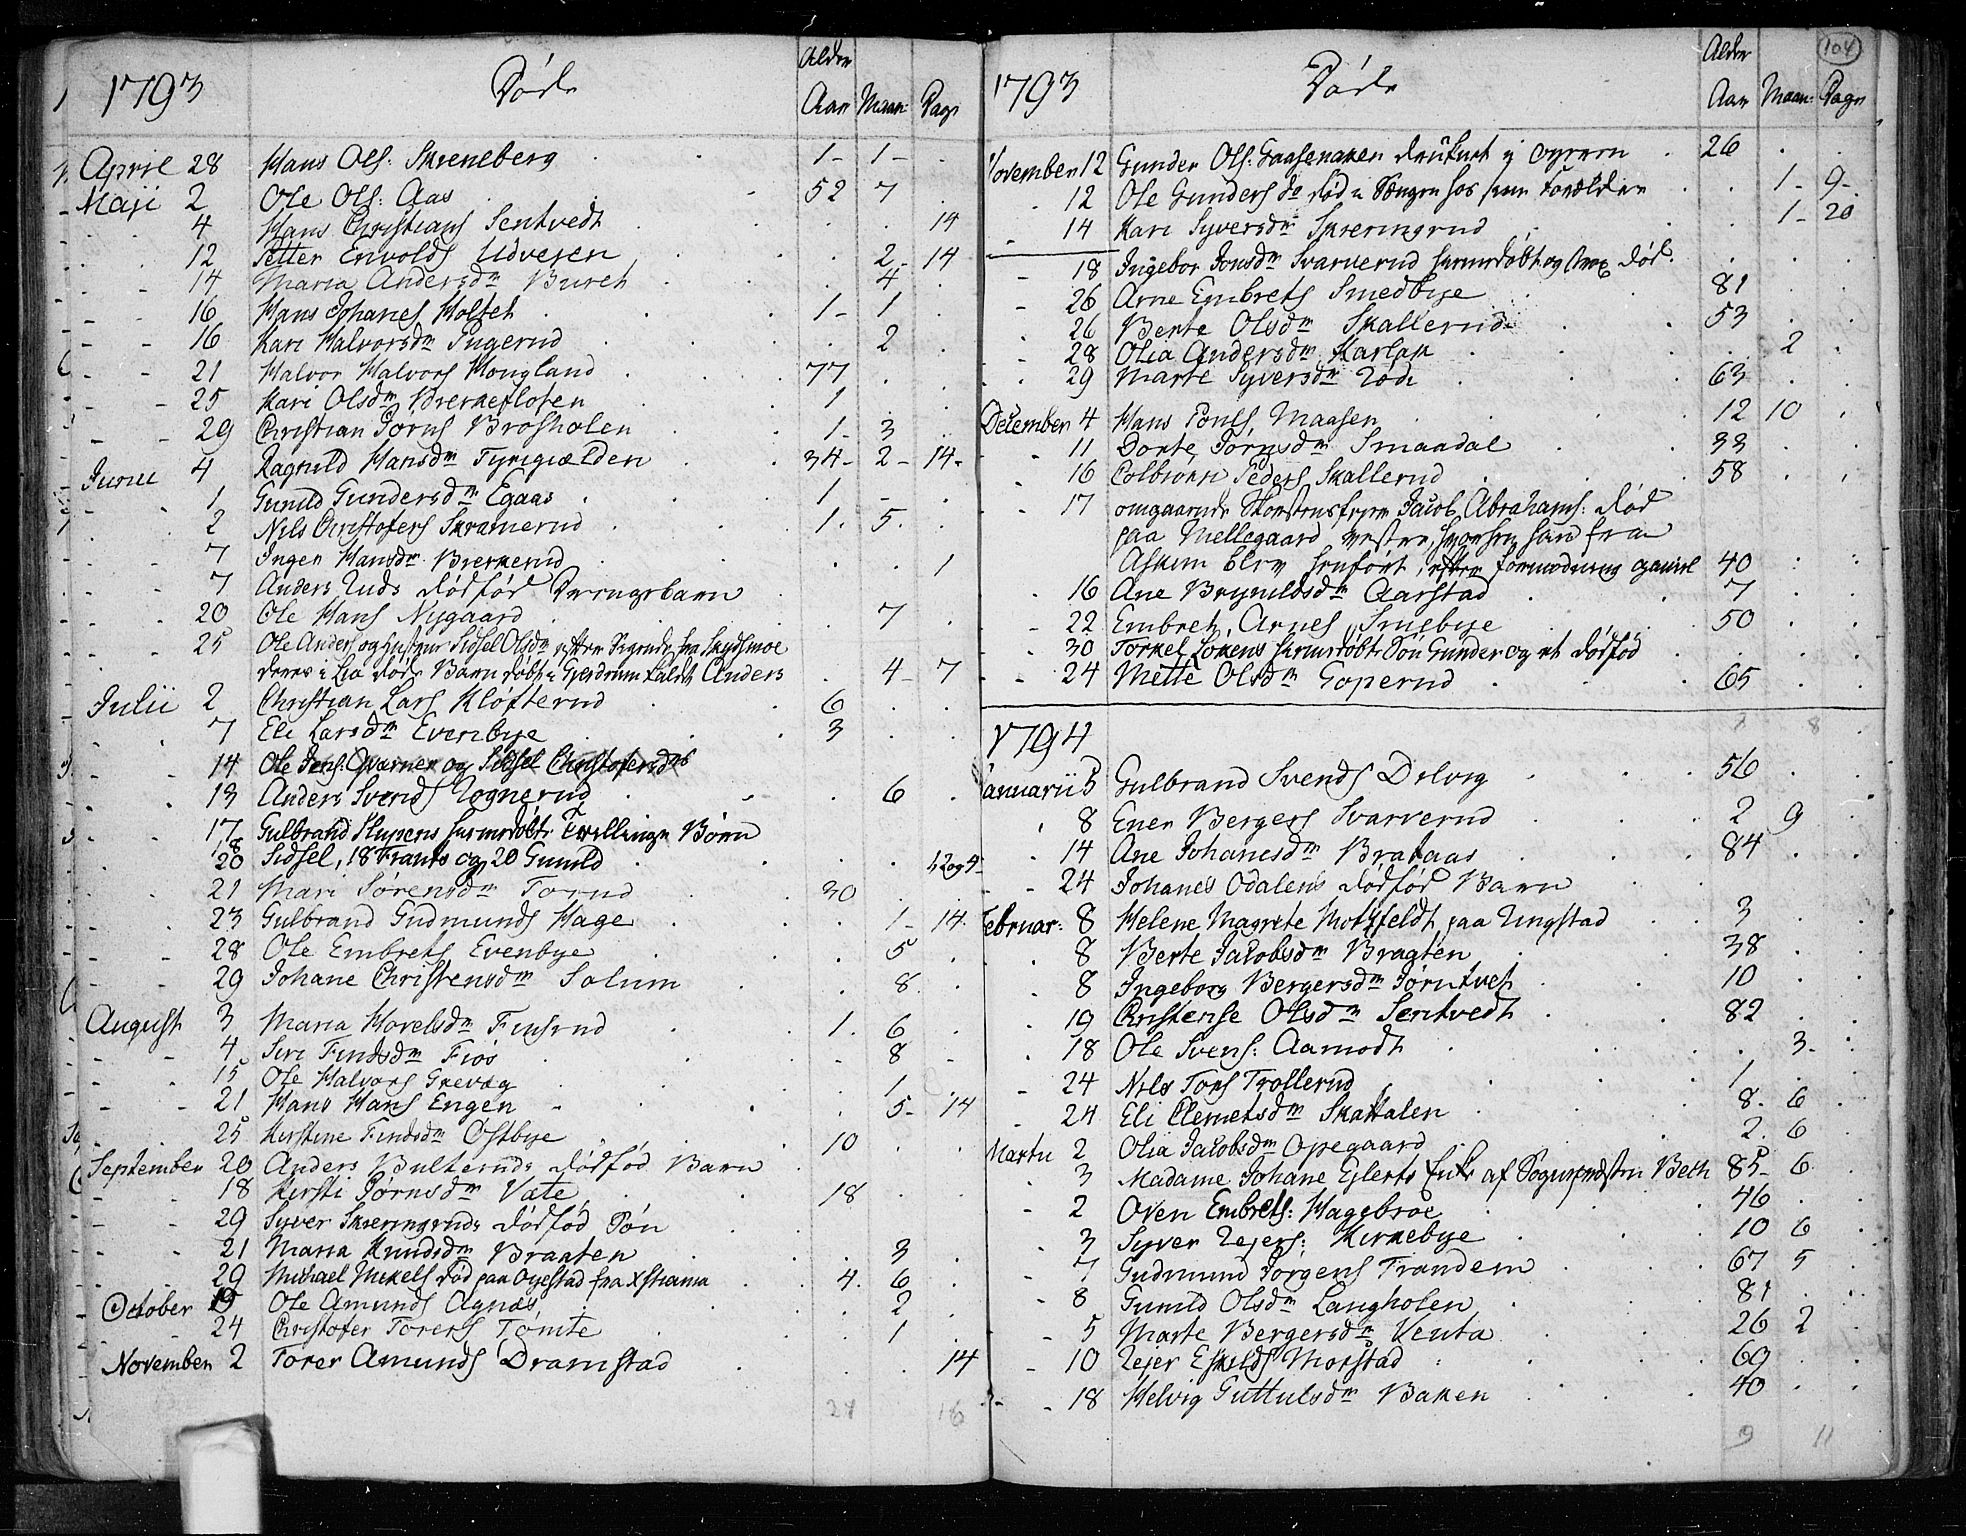 1793 Døde Alder
Aar Maan: Dage
April 28 Hans Ols: Skreneberg 1 - 1 -
Maji 2 Ole Ols: Aas 52 7
4 Hans Christians Sentvedt 14
12 Petter Envolds Udvejen 2 - 14
14 Maria Andersdm Burch 4
16 Hans Johanes Holset 1 - 1
16 Kari Halvorsdm Ingerud 2
21 Halvor Halvors Hougland 77
25 Kari Olsdm Brekkefloten 1
29 Christian Jørns Brosholen 1 - 3
Junii 4 Ragnild Hansdm Tyrigielden 34 - 2 - 14 -
1 Gunild Gundersdm Egaas 1 -
2 Nils Christofers Skramerud 1 . 5 .
7 Inger Hansdm Brekkerud 1
7 Anders Ruds dødfød Drengebarn
20 Ole Hans Nygaard 7
25 Ole Anders og Hustrue Sidsel Olsdm fra Skydsmoe
deres i Lia døde Barn døbt i Gjerdrum kaldt Anders 4 - 7
Julii 2 Christian Lars Kløfterud 6
7 Eli Larsdm Evenbye 3
14 Ole Jens: Qværner og Sidsel Christofersdm
13 Anders Svends Rognerud 6
17 Gulbrand Stupens hiemdøbte Tvillinge Børn
18
20 Sidsel, 18 Frants og 20 Gunild 1 2 og 4 -
21 Mari Sørensdm Torud 30
23 Gulbrand Gudmunds Hage 1 - 14
28 Ole Embrets Evenbye 5
29 Johane Christensdm Solum 8
August 3 Maria Hovelsdm Finsrud 1 . 6
4 Siri Findsdm Fiøs 8
15 Ole Halvors Grevæg 1
21 Hans Hans Engen 5 - 14
25 Kirstine Findsdm Østbye 10
September 20 Anders Bulteruds dødfød Barn
18 Kirsti Jørnsdm Væte 18
29 Syver Skreringruds dødfød Søn
21 Maria Knudsdm Braaten 3
29 Michael Mikels død paa Oyestad fra Xstiania 4 . 6
October 19 Ole Amunds Agnæs 2
24 Christofer Torers Tømte 1
November 2 Torer Amunds Dramstad 14
27 16
104
1793 Døde Alder
Aar Maan: Dage
November 12 Gunder Ols: Gaasenaken druknet i 26
12 Ole Gunders do død i Sengen hos sine Forældre 1 - 9 -
14 Kari Syversdm Skreringrud 1 - 20
18 Ingebor Jonsdm Svarverud hiemdøbt og død
26 Arne Embrets Smedbye 81
26 Berte Olsdm Skallerud 53
28 Olia Andersdm Karlak 2
29 Marte Syversdm Røde 63
December 4 Hans Pouls Maasen 12 10
11 Dorte Jørnsdm Smaadal 33
16 Colbiørn Peders Skallerud 58
17 omgaaende Skorstensfeyer Jacob Abrahams: død
paa Mellegaard vestre, hvorhen han fra
Askim blev henført, efter Formodning gammel 40
16 Ane Brynildsdm Aarstad 7
22 Embret Arnes Smebye 50
30 Torkel Lokens hiemdøbt Søn Gunder og et dødfød
24 Mette Olsdm Goperud 65
7 8
1794
Januarii 5 Gulbrand Svends Delvig 56
8 Ener Bergers Svarverud 2 9
14 Ane Johanesdm Brataas 84
24 Johanes Odalens dødfød Barn
Februar: 8 Helene Magrete Motzfeldt paa Ringstad 3
8 Berte Jacobsdm Bragten 38
8 Ingeborg Bergersdm Tørntvet 10
19 Christense Olsdm Sentvedt 82
18 Ole Svens: Aamodt 3 -
24 Nils Tors Trollerud 1
24 Eli Clemetsdm Skattalen 8 . 6
Martii 2 Olia Jacobsdm Opegaard 2 . 6
3 Madame Johane Ejlerts Enke af Sognepræsten Beth 85 - 6
2 Oven Embrets: Hagebroe 46
3 Syver Rejers: Kirkebye 10 6
7 Gudmund Jørgens Trandem 67 5
8 Gunild Olsdm Langholen 81
5 Marte Bergersdm Venta 26 2
10 Rejer Eskilds Morstad 69
18 Helvig Guttulsdm Baken 40
9 11